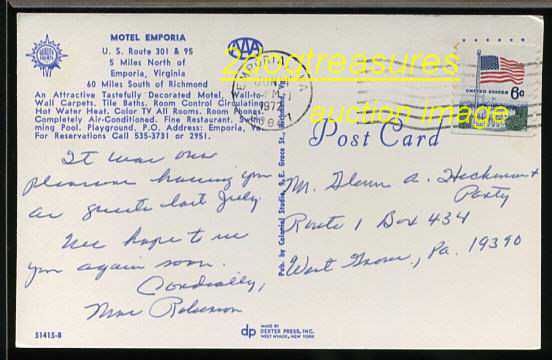 MOTEL EMPORIA
U. S. Route 301 & 95
5 Miles North of
Emporia, Virginia
60 Miles South of Richmond
An Attractive Tastefully Decorated Motel. Wall-to-
Wall Carpets. Tile Baths. Room Control Circulating
Hot Water Heat. Color TV All Rooms. Room Phones.
Completely Air-Conditioned. Fine Restaurant. Swim-
ming Pool. Playground. P.O. Address: Emporia, Va.
For Reservations Call 535-3731 or 2951.
It was our
pleasure having you
as guests last July.
We hope to see
you again soon.
Cordially,
Mrs Roberson
51415-B
AAA
EMPORIA
JUN
1972
VA
Pub. by Colonial Studio, S. E. Greco St.
dp
MADE BY
DEXTER PRESS, INC.
WEST NYACK, NEW YORK
2dogtreasures
auction image
UNITED STATES
6c
Post Card
Mr. Glenn A. Heckman &
Party
Route 1 Box 434
West Grove, Pa. 19390